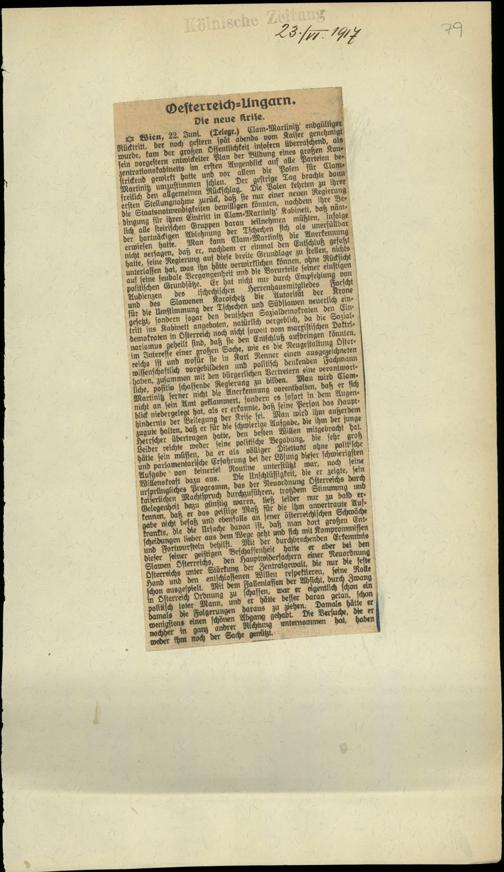 Kölnische Zeitung
23./VI. 1917
79
Oesterreich-Ungarn.
Die neue Krise.
✩ Wien, 22. Juni. (Telegr.) Clam-Martinitz' endgültiger
Rücktritt, der noch gestern spät abends vom Kaiser genehmigt
wurde, kam der großen Öffentlichkeit insofern überraschend, als
sein vorgestern entwickelter Plan der Bildung eines großen Kon-
zentrationskabinetts im ersten Augenblick auf alle Parteien be-
strickend gewirkt hatte und vor allem die Polen für Clam-
Martinitz umzustimmen schien. Der gestrige Tag brachte dann
freilich den allgemeinen Rückschlag. Die Polen kehrten zu ihrer
ersten Stellungnahme zurück, daß sie nur einer neuen Regierung
die Staatsnotwendigkeiten bewilligen könnten, nachdem ihre Be-
dingung für ihren Eintritt in Clam-Martinitz' Kabinett, daß näm-
lich alle slawischen Gruppen daran teilnehmen müßten, infolge
der hartnäckigen Ablehnung der Tschechen sich als unerfüllbar
erwiesen hatte. Man kann Clam-Martinitz die Anerkennung
nicht versagen, daß er, nachdem er einmal den Entschluß gefaßt
hatte, seine Regierung auf diese breite Grundlage zu stellen, nichts
unterlassen hat, was ihn hätte verwirklichen können, ohne Rücksicht
auf seine feudale Vergangenheit und die Vorurteile seiner einstigen
politischen Grundsätze. Er hat nicht nur durch Empfehlung von
Audienzen des tschechischen Herrenhausmitgliedes Forscht
und des Slowenen Koroschetz die Autorität der Krone
für die Umstimmung der Tschechen und Südslawen neuerlich ein-
gesetzt, sondern sogar den deutschen Sozialdemokraten den Ein-
tritt ins Kabinett angeboten, natürlich vergeblich, da die Sozial-
demokraten in Österreich noch nicht soweit vom marxistischen Doktri-
narismus geheilt sind, daß sie den Entschluß aufbringen könnten,
im Interesse einer großen Sache, wie es die Neugestaltung Öster-
reichs ist und wofür sie in Karl Renner einen ausgezeichneten
wissenschaftlich vorgebildeten und politisch denkenden Fachmann
haben, zusammen mit den bürgerlichen Vertretern eine verantwort-
liche, positiv schaffende Regierung zu bilden. Man wird Clam-
Martinitz ferner nicht die Anerkennung vorenthalten, daß er sich
nicht an sein Amt geklammert, sondern es sofort in dem Augen-
blick niedergelegt hat, als er erkannte, daß seine Person das Haupt-
hindernis der Beilegung der Krise sei. Man wird ihm außerdem
zugute halten, daß er für die schwierige Aufgabe, die ihm der junge
Herrscher übertragen hatte, den besten Willen mitgebracht hat.
Leider reichte weder seine politische Begabung, die sehr groß
hätte sein müssen, da er als völliger Dilettant ohne politische
und parlamentarische Erfahrung bei der Lösung dieser schwierigsten
Aufgabe von keinerlei Routine unterstützt war, noch seine
Willenskraft dazu aus. Die Unschlüssigkeit, die er zeigte, sein
ursprüngliches Programm, das der Neuordnung Österreichs durch
kaiserlichen Machtspruch durchzuführen, trotzdem Stimmung und
Gelegenheit dazu günstig waren, ließ leider nur zu bald er-
kennen, daß er das geistige Maß für die ihm anvertraute Auf-
gabe nicht besaß und ebenfalls an jener österreichischen Schwäche
krankte, die die Ursache davon ist, daß man dort großen Ent-
scheidungen lieber aus dem Wege geht und sich mit Kompromissen
und Fortwursteln behilft. Mit der durchbrechenden Erkenntnis
dieser seiner geistigen Beschaffenheit hatte er aber bei den
Slawen Österreichs, den Hauptwidersachern einer Neuordnung
Österreichs unter Stärkung der Zentralgewalt, die nur die feste
Hand und den entschlossenen Willen respektieren, seine Rolle
schon ausgespielt. Mit dem Fallenlassen der Absicht, durch Zwang
in Österreich Ordnung zu schaffen, war er eigentlich schon ein
politisch toter Mann, und er hätte besser daran getan, schon
damals die Folgerungen daraus zu ziehen. Damals hätte er
wenigstens einen schönen Abgang gehabt. Die Versuche, die er
nachher in ganz andrer Richtung unternommen hat, haben
weder ihm noch der Sache genützt.